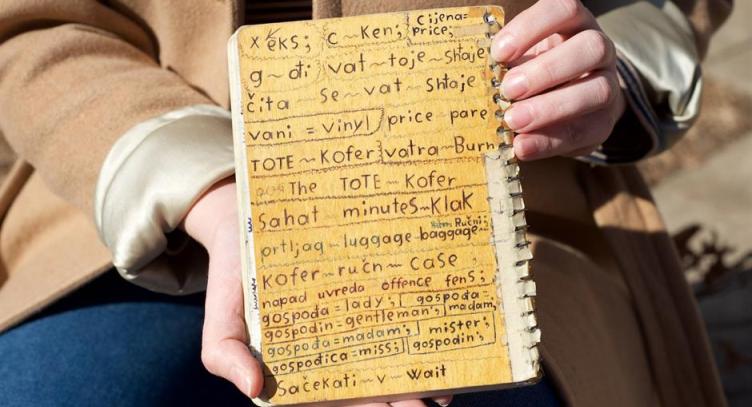 x ěks; c ~ Ken; Cijena= price;
g ~ đi vat ~ toje ~ shtaje
čita ~ se ~ vat ~ shtaje
vani = vinyl price pare
TOTE ~ Kofer vatra ~ Burn
The TOTE ~ Kofer
Sahat minutes ~ Klak
prtljag ~ luggage baggage Ručni;
Kofer ~ ručn ~ case
napad uvreda offence fens;
gospođa = lady; gospođa=
gospodin = gentleman; madam,
gospođa = madam; mister;
gospođica = miss; gospodin;
Sačekati ~ v ~ Wait